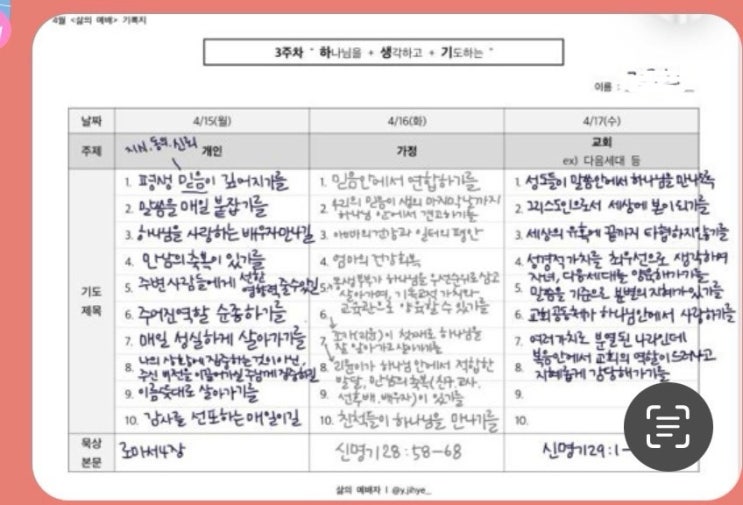 4월 <삶의 예배> 기록지
3주차 " 하나님을 + 생각하고 + 기도하는 "
이름 :
날짜 4/15(월) 4/16(화) 4/17(수)
주제 지식, 동의, 신뢰 개인 가정 교회
ex) 다음세대 등
기도
제목
1. 평생 믿음이 깊어지기를
2. 말씀을 매일 붙잡기를
3. 하나님을 사랑하는 배우자만나길
4. 만남의축복이 있기를
5. 주변사람들에게 선한 영향력줄수있길
6. 주어진역할 순종하기를
7. 매일 성실하게 살아가기를
8. 나의 상황에 집중하는것이아닌,
주신 비전을 이끌어가실 주님께 집중하길
9. 이름뜻대로 살아가기를
10. 감사를 선포하는매일이길
1. 믿음안에서 연합하기를
2. 우리의 믿음이 생의 마지막날까지
하나님 안에서 견고하기를
3. 아빠의건강과 일터의 평안
4. 엄마의 건강회복
5. 동생부부가 하나님을 우선순위로삼고
살아가며, 기독교적 가치와
6. 교육관으로 양육할 수 있기를
7. 조카(리윤)이 첫째로 하나님을
잘 알아가고살아가기를
8. 리윤이가 하나님 안에서 적합한
발달, 만남의축복(친구,교사,
9. 선후배,배우자)이 있기를
10. 친척들이 하나님을 만나기를
1. 성도들이 말씀안에서 하나님을 만나도록
2. 그리스도인으로서 세상에 본이되기를
3. 세상의 유혹에 끝까지 타협하지않기를
4. 성경적가치를 최우선으로 생각하며
자녀, 다음세대를 양육해가기를
5. 말씀을 기준으로 분별의지혜가있기를
6. 교회공동체가 하나님안에서 사랑하기를
7. 여러가치로 분열된 나라인데
복음안에서 교회의 역할이드러나고
8. 지혜롭게 감당해가기를
9.
10.
묵상
본문
로마서4장 신명기28:58-68 신명기29:1-
삶의 예배자 | @y.jihye_